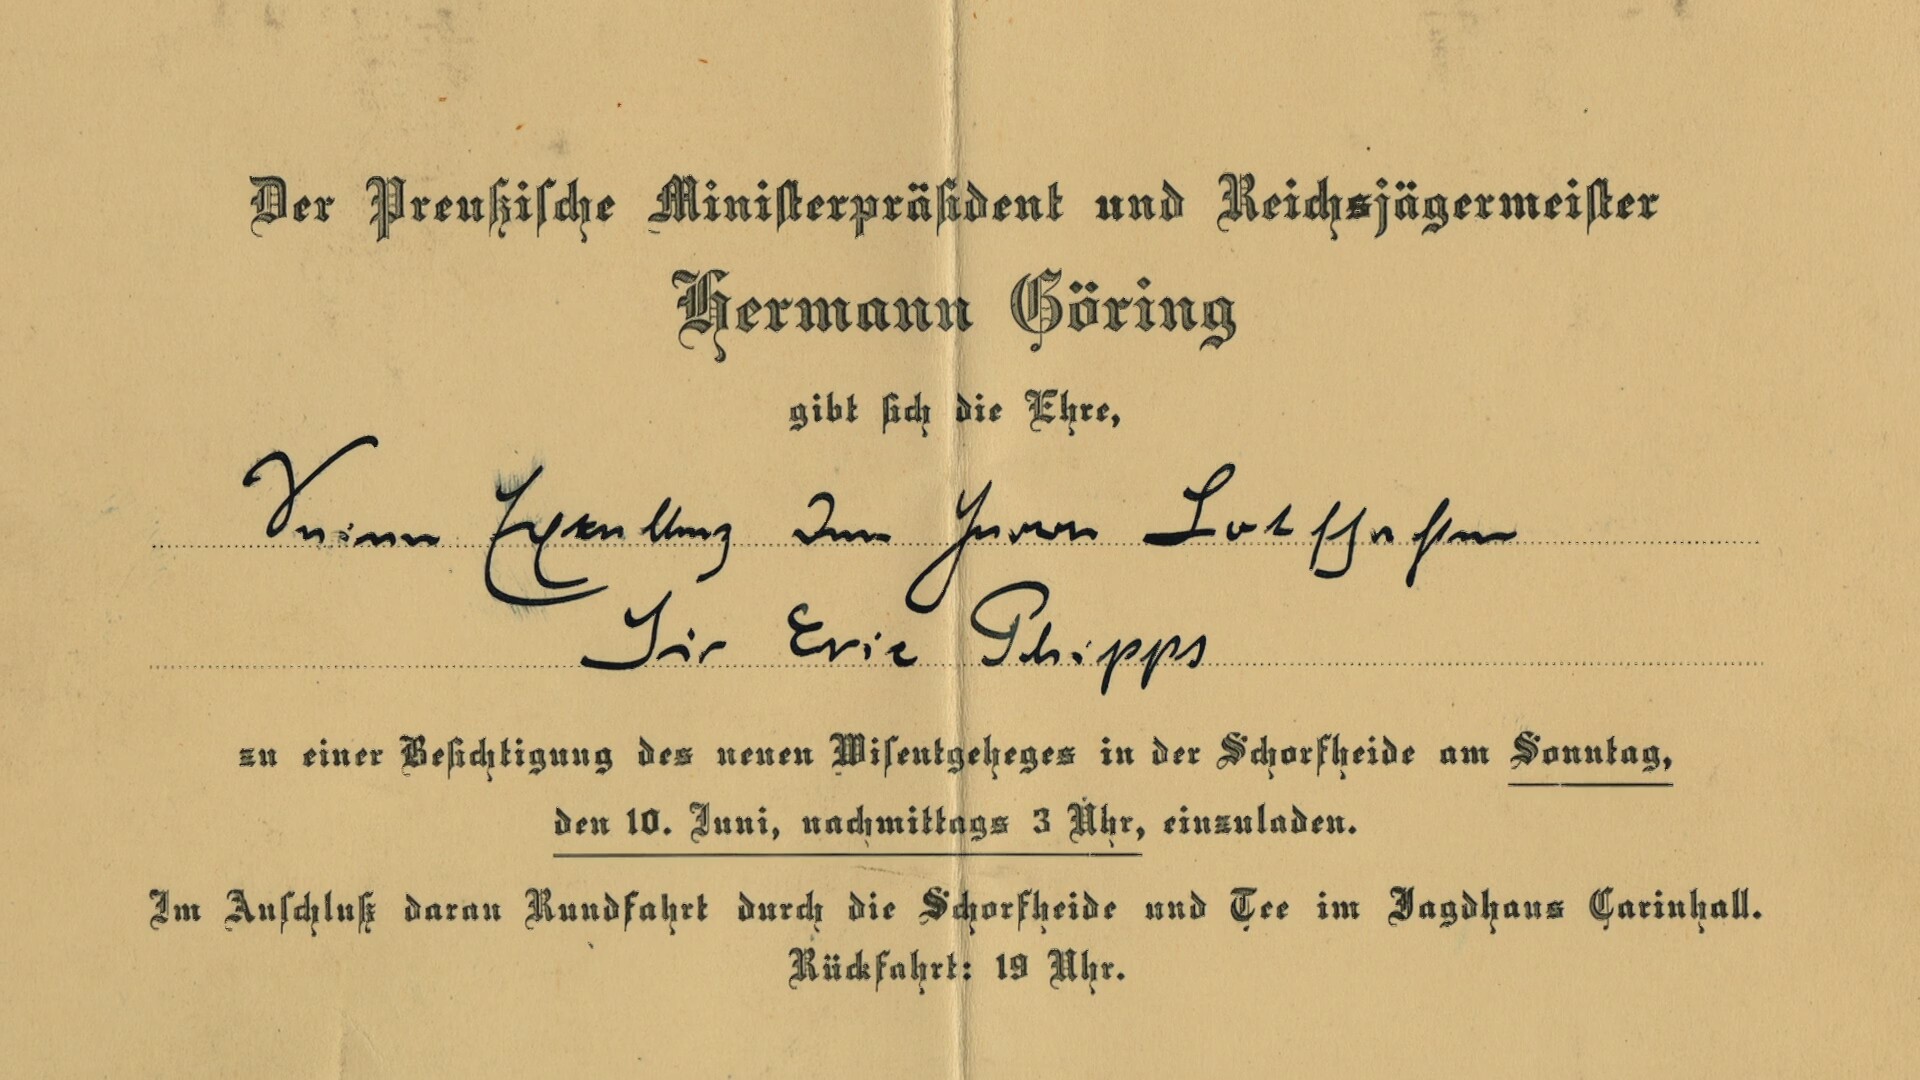 Der Preußische Ministerpräsident und Reichsjägermeister
Hermann Göring
gibt sich die Ehre,
Seiner Exzellenz dem Herrn Botschafter
Sir Eric Phipps
zu einer Besichtigung des neuen Wisentgeheges in der Schorfheide am Sonntag,
den 10. Juni, nachmittags 3 Uhr, einzuladen.
Im Anschluß daran Rundfahrt durch die Schorfheide und Tee im Jagdhaus Carinhall.
Rückfahrt: 19 Uhr.